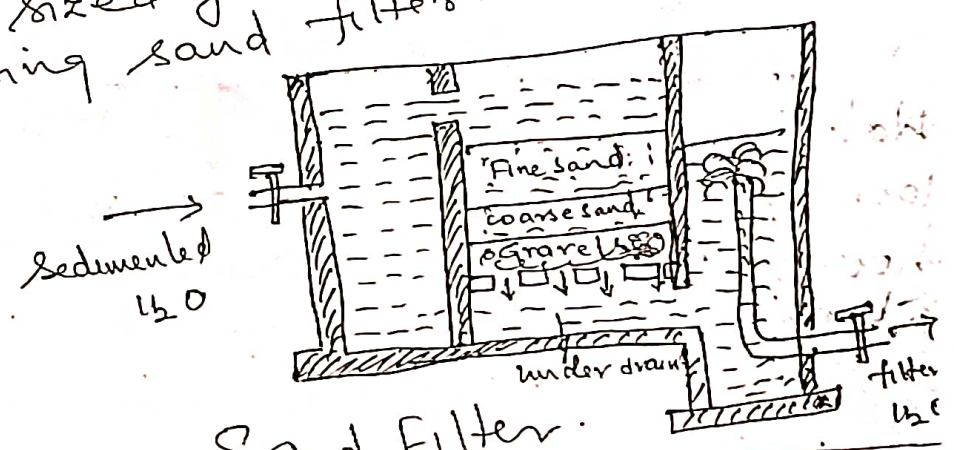 sized
ing sand filter
Fine sand
coarse sand
Gravels
Sedimented
H2O
under drain
filter
H2O
Sand Filter.